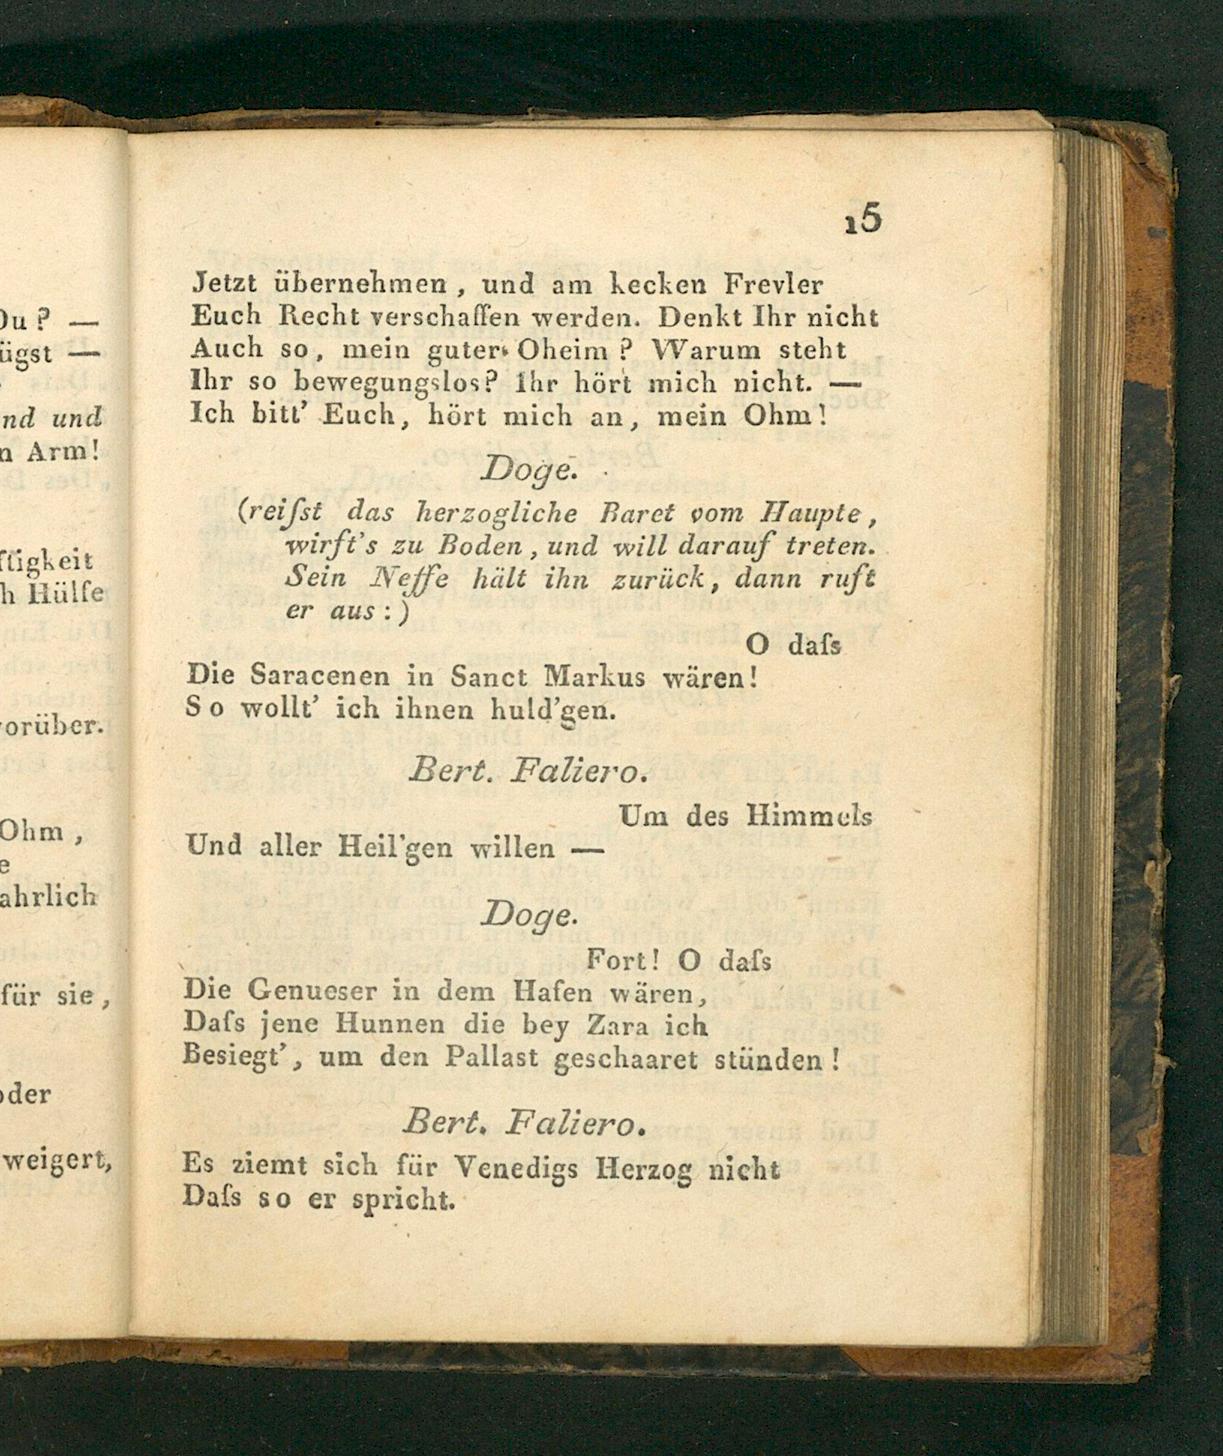 Du? —
ügst —
nd und
n Arm!
ftigkeit
h Hülfe
vorüber.
Ohm,
e
ahrlich
für sie,
oder
weigert,
15
Jetzt übernehmen, und am kecken Frevler
Euch Recht verschaffen werden. Denkt Ihr nicht
Auch so, mein guter Oheim? Warum steht
Ihr so bewegungslos? Ihr hört mich nicht. —
Ich bitt' Euch, hört mich an, mein Ohm!
Doge.
(reiſst das herzogliche Baret vom Haupte,
wirft's zu Boden, und will darauf treten.
Sein Neffe hält ihn zurück, dann ruft
er aus:)
O daſs
Die Saracenen in Sanct Markus wären!
So wollt' ich ihnen huld'gen.
Bert. Faliero.
Um des Himmels
Und aller Heil'gen willen —
Doge.
Fort! O daſs
Die Genueser in dem Hafen wären,
Daſs jene Hunnen die bey Zara ich
Besiegt', um den Pallast geschaaret stünden!
Bert. Faliero.
Es ziemt sich für Venedigs Herzog nicht
Daſs so er spricht.